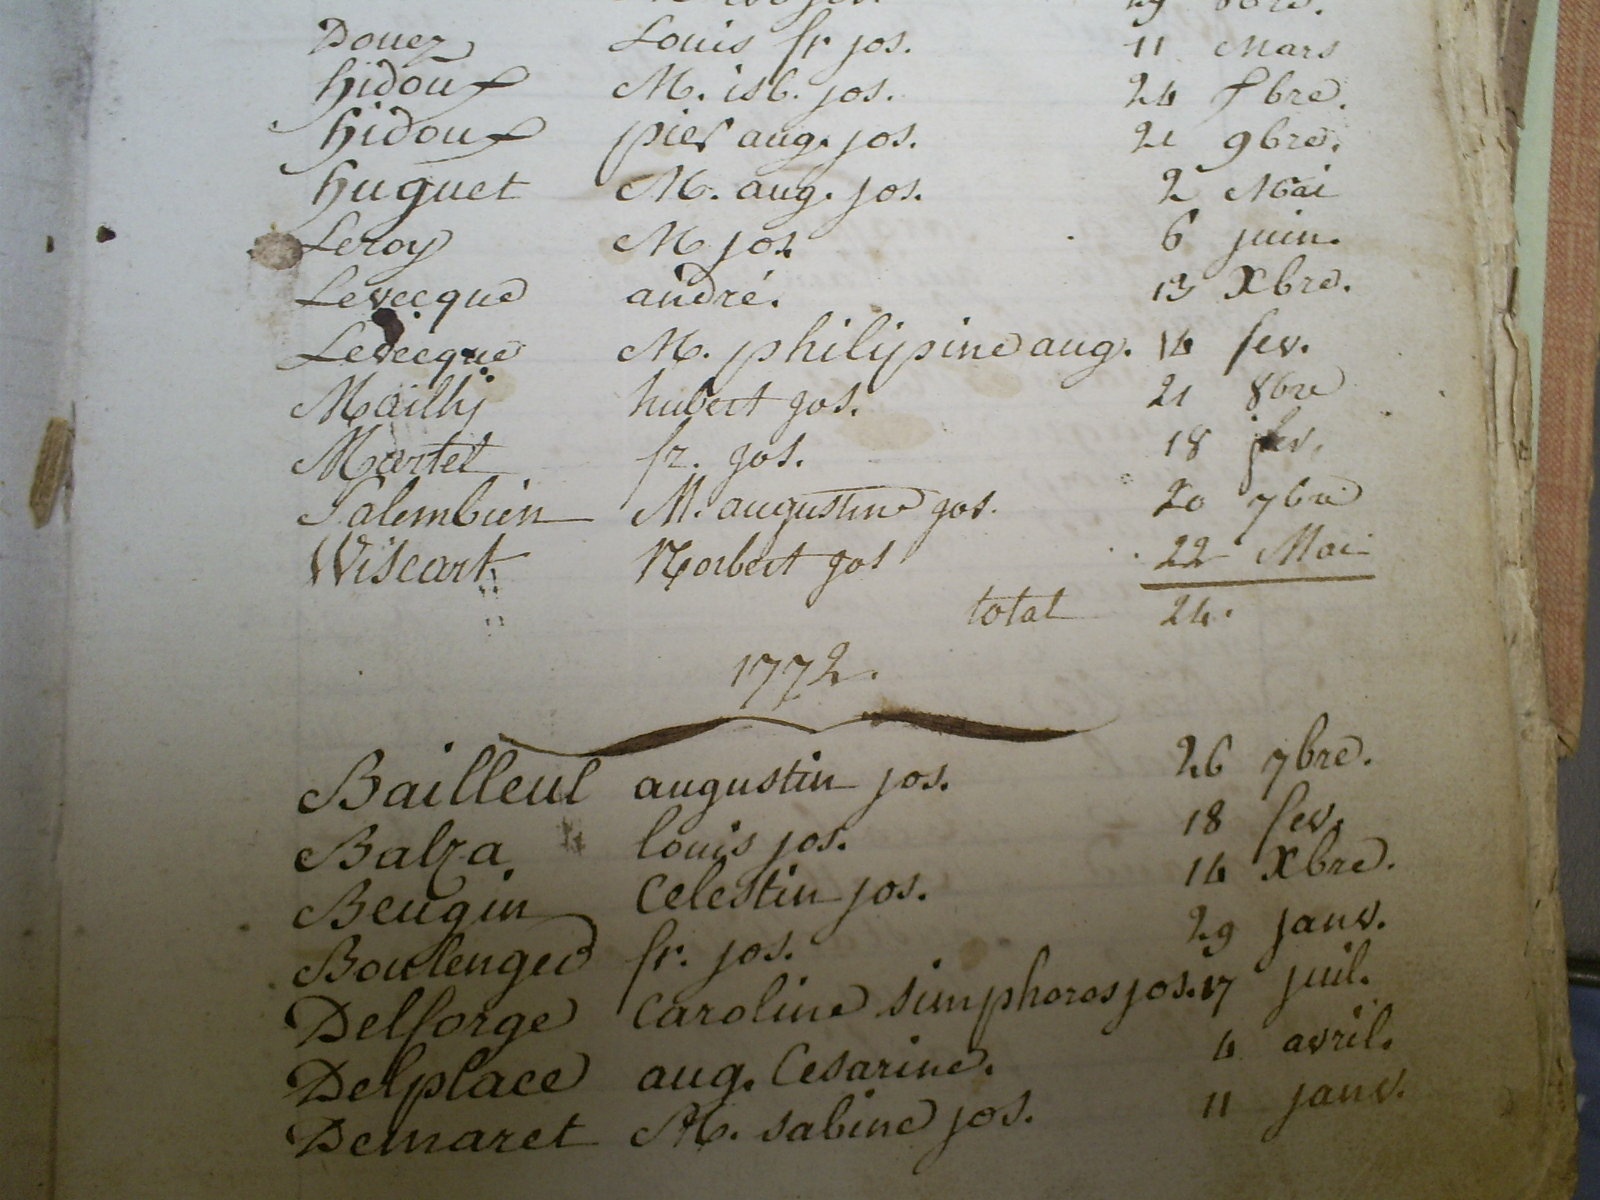 Douez Louis fr jos. 11 Mars
hidoux M. isb. jos. 24 fbre.
hidoux pier aug. jos. 21 9bre.
huguet M. aug. jos. 2 Mai
Leroy M jos. 6 juin.
Levecque andré. 13 Xbre.
Levecque M. philippine aug. 14 fev.
Mailly hubert jos. 21 8bre
Martel fr. jos. 18 fev.
Salembien M. augustine jos. 20 7bre
Wiscart Norbert jos 22 Mai
total 24.
1772.
Bailleul augustin jos. 26 7bre.
Balza louis jos. 18 fev.
Beugin Celestin jos. 14 Xbre.
Boulenger fr. jos. 29 janv.
Delforge Caroline simphoros jos. 17 juil.
Delplace aug. Cesarine. 4 avril.
Demaret M. sabine jos. 11 janv.